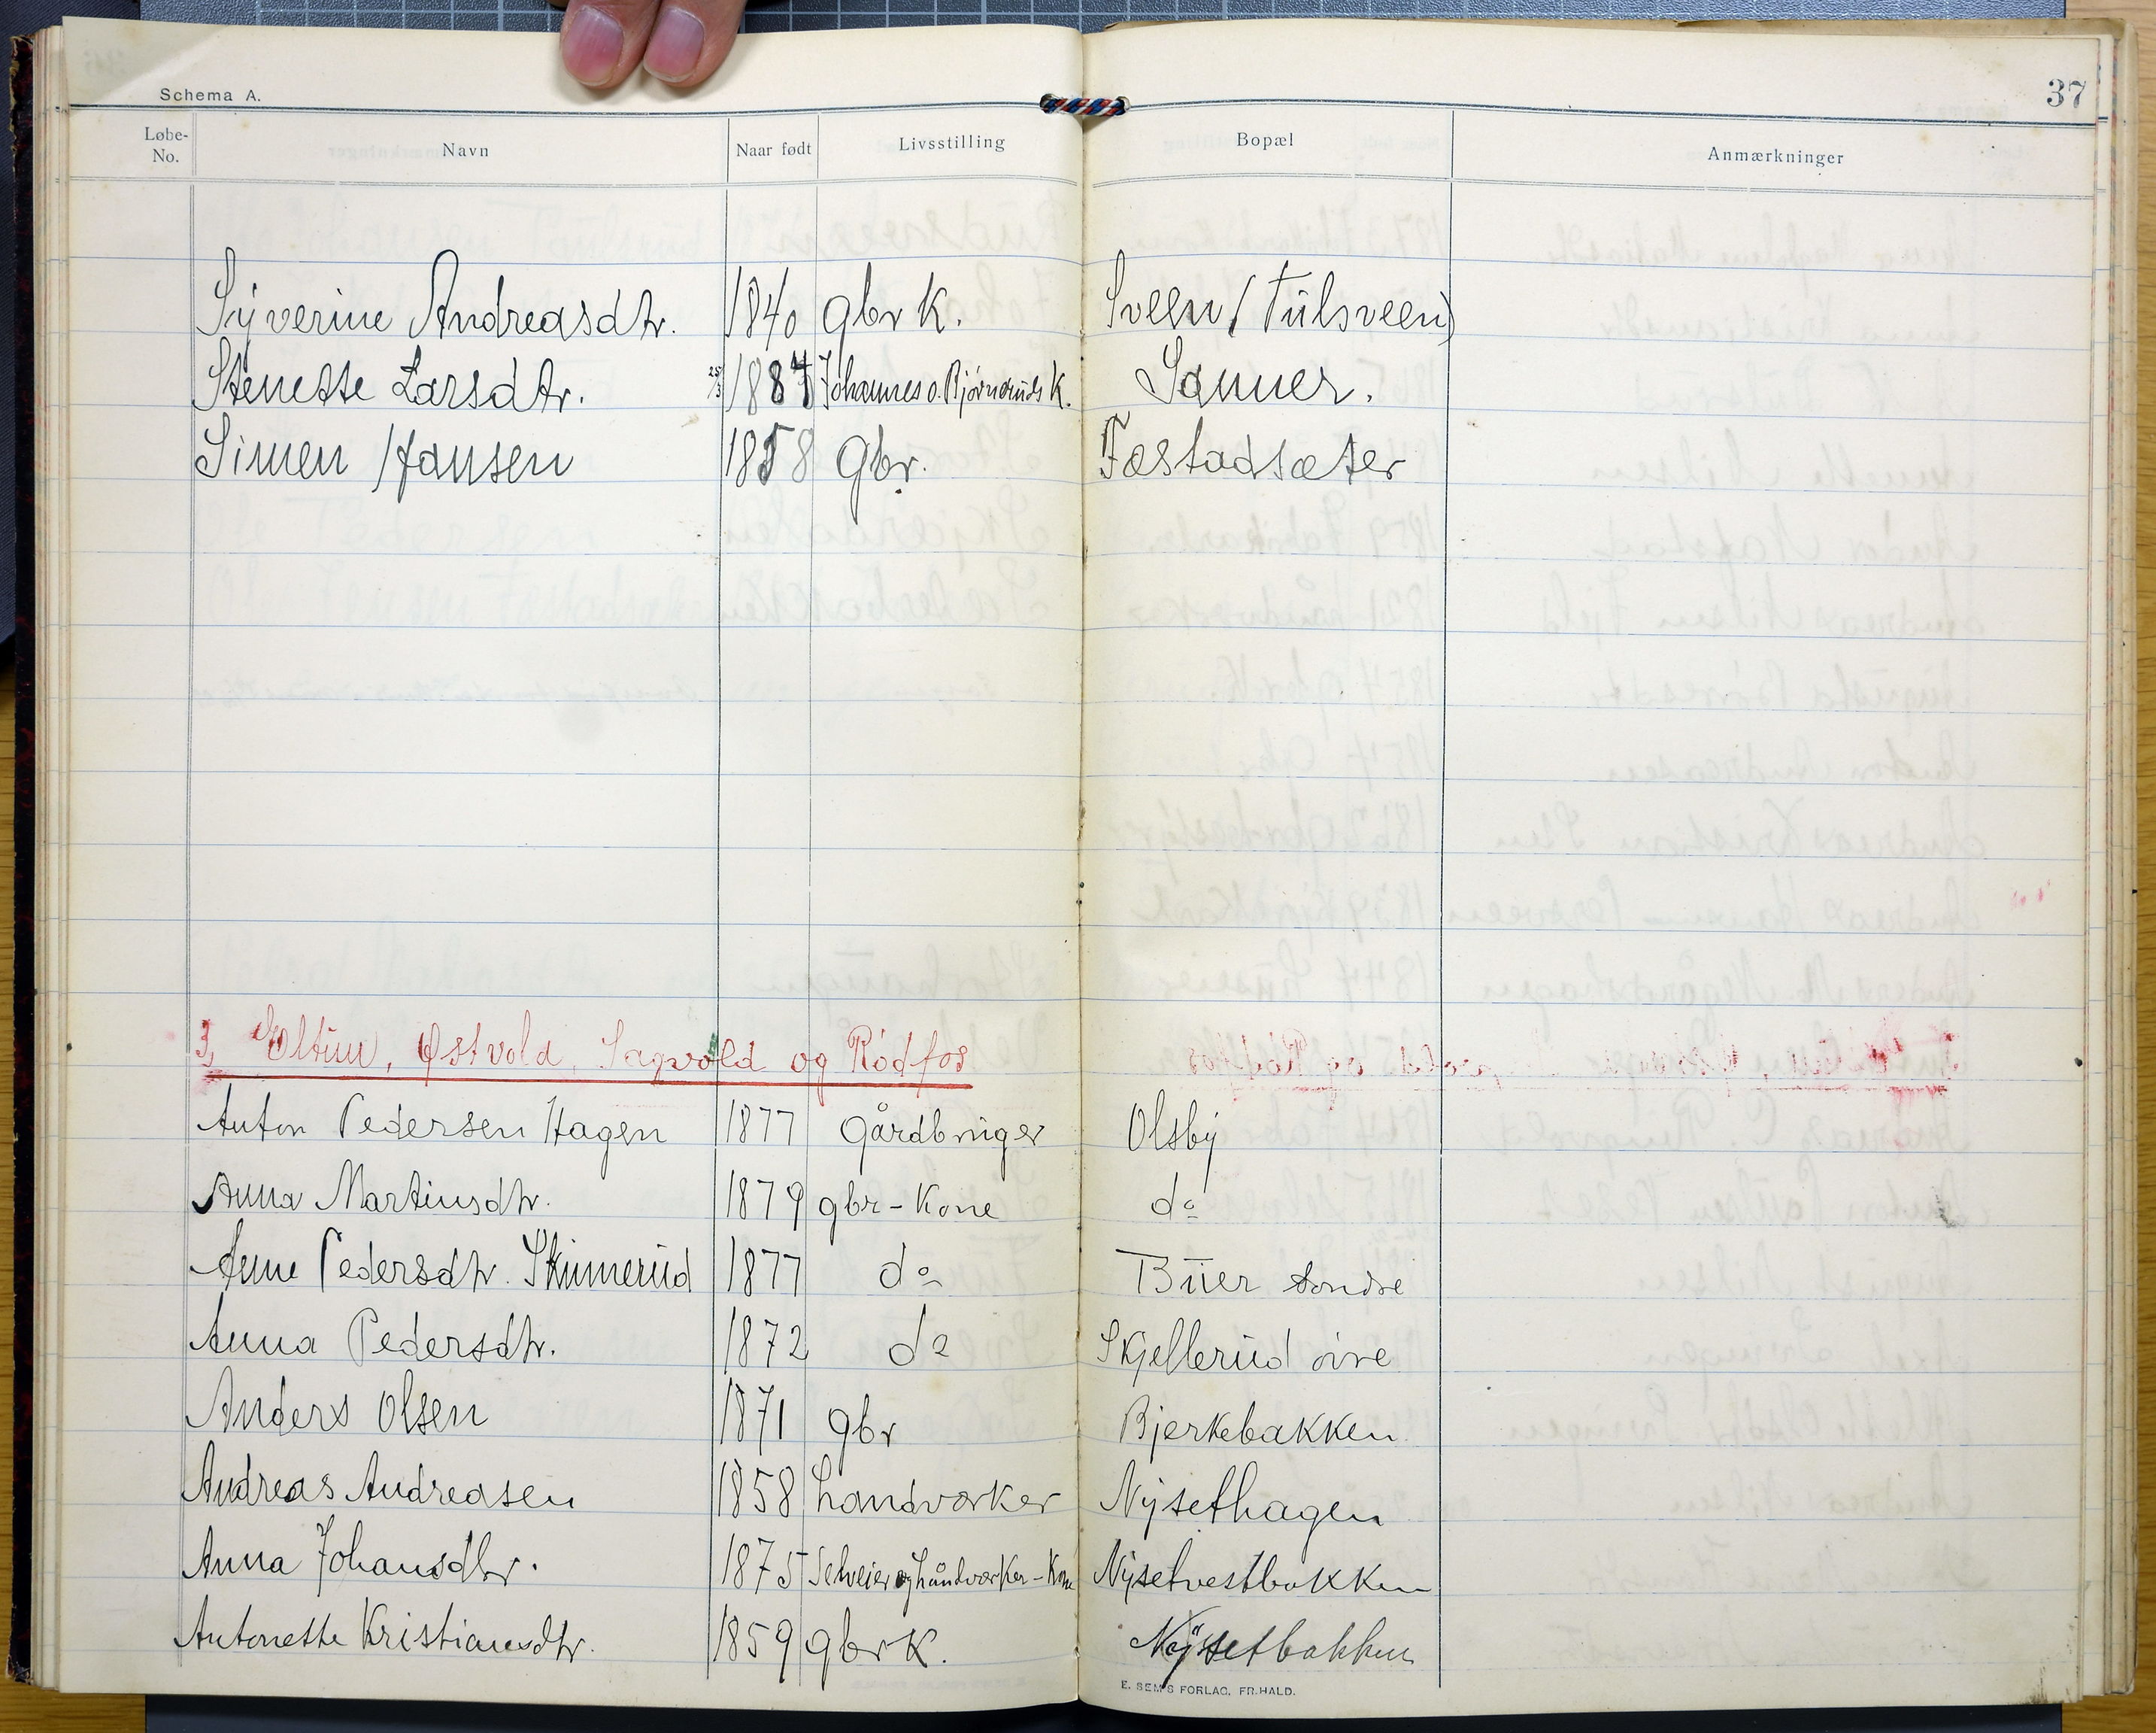 Schema A.
37
Løbe-No. Navn Naar født Livsstilling Bopæl Anmærkninger
Syverine Andreasdtr. 1840 gbr K. Sveen (Tulsveen)
Stenette Larsdtr. 25/3 1887 Johannes o. Bjørneruds K. Sanner.
Simen Hansen 1858 gbr. Fæstadsæter
3, Eltun, Østvold, Sagvold og Rødfos
Anton Pedersen Hagen 1877 Gårdbruger Olsby
Anna Martinsdtr. 1879 gbr-Kone do
Anne Pedersdtr. Skinnerud 1877 do Buer søndre
Anna Pedersdtr. 1872 do Skjellerud øvre
Anders Olsen 1871 gbr Bjerkebakken
Andreas Andreasen 1858 handværker Nysethagen
Anna Johansdtr. 1875 Selveier og håndværker-Kone Nysetvestbakken
Antonette Kristiansdtr. 1859 gbr K. Nysetbakken
E. SEM'S FORLAG, FR.HALD.